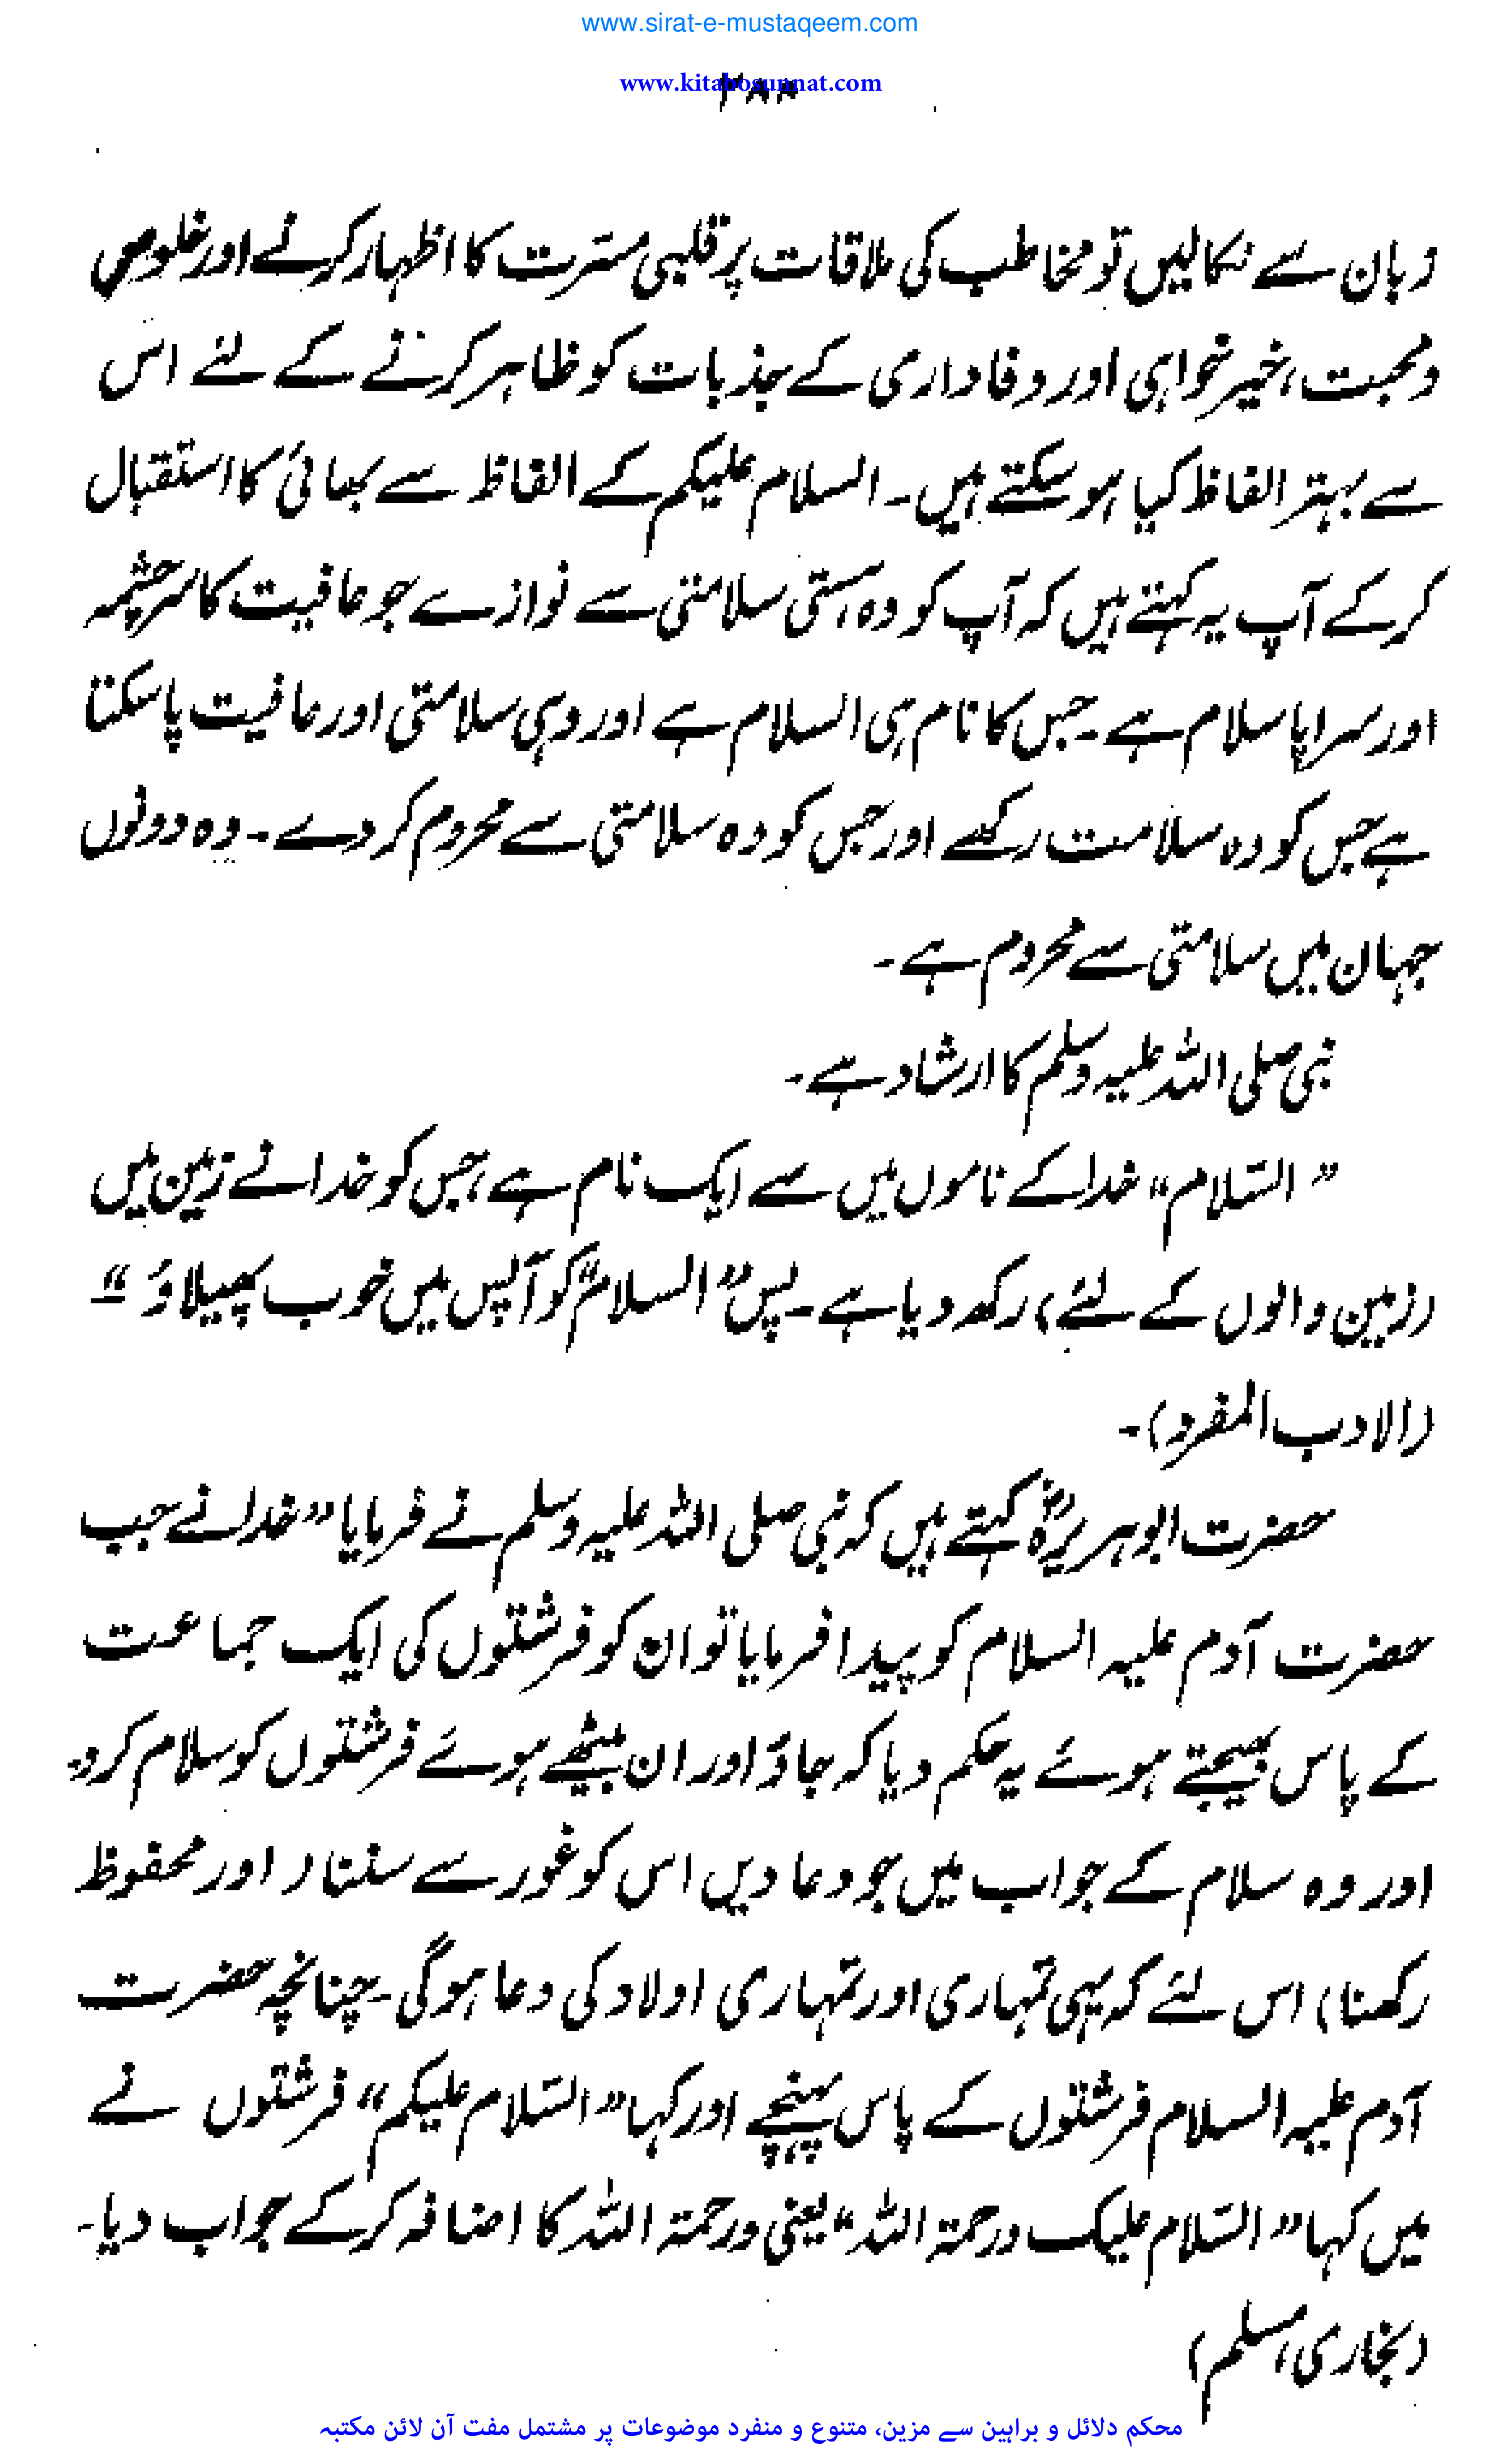 www.sirat-e-mustaqeem.com
www.kitabosunnat.com
زبان سے نکالیں تو مخاطب کی ملاقات پر قلبی مسرّت کا اظہار کرنے اور خلوص
ومحبت، خیر خواہی اور وفاداری کے جذبات کو ظاہر کرنے کے لئے اس
سے بہتر الفاظ کیا ہو سکتے ہیں۔ السلام علیکم کے الفاظ سے بھائی کا استقبال
کر کے آپ یہ کہتے ہیں کہ آپ کو وہ ہستی سلامتی سے نوازے جو عافیت کا سرچشمہ
اور سراپا سلام ہے۔ جس کا نام ہی السلام ہے اور وہی سلامتی اور عافیت پا سکتا
ہے جس کو وہ سلامت رکھے اور جس کو وہ سلامتی سے محروم کر دے۔ وہ دونوں
جہان میں سلامتی سے محروم ہے۔
نبی صلی اللہ علیہ وسلم کا ارشاد ہے۔
”السّلام“ خدا کے ناموں میں سے ایک نام ہے، جس کو خدا نے زمین میں
(زمین والوں کے لئے) رکھ دیا ہے۔ پس ”السلام“ کو آپس میں خوب پھیلاؤ“
(الادب المفرد)۔
حضرت ابوہریرہؓ کہتے ہیں کہ نبی صلی اللہ علیہ وسلم نے فرمایا ”خدا نے جب
حضرت آدم علیہ السلام کو پیدا فرمایا تو ان کو فرشتوں کی ایک جماعت
کے پاس بھیجتے ہوئے یہ حکم دیا کہ جاؤ اور ان بیٹھے ہوئے فرشتوں کو سلام کرو۔
اور وہ سلام کے جواب میں جو دعا دیں اس کو غور سے سننا (اور محفوظ
رکھنا) اس لئے کہ یہی تمہاری اور تمہاری اولاد کی دعا ہوگی۔ چنانچہ حضرت
آدم علیہ السلام فرشتوں کے پاس پہنچے اور کہا ”السّلام علیکم“ فرشتوں نے
میں کہا ”السّلام علیک ورحمۃ اللہ“ یعنی ورحمۃ اللہ کا اضافہ کر کے جواب دیا۔
(بخاری، مسلم)
محکم دلائل و براہین سے مزین، متنوع و منفرد موضوعات پر مشتمل مفت آن لائن مکتبہ